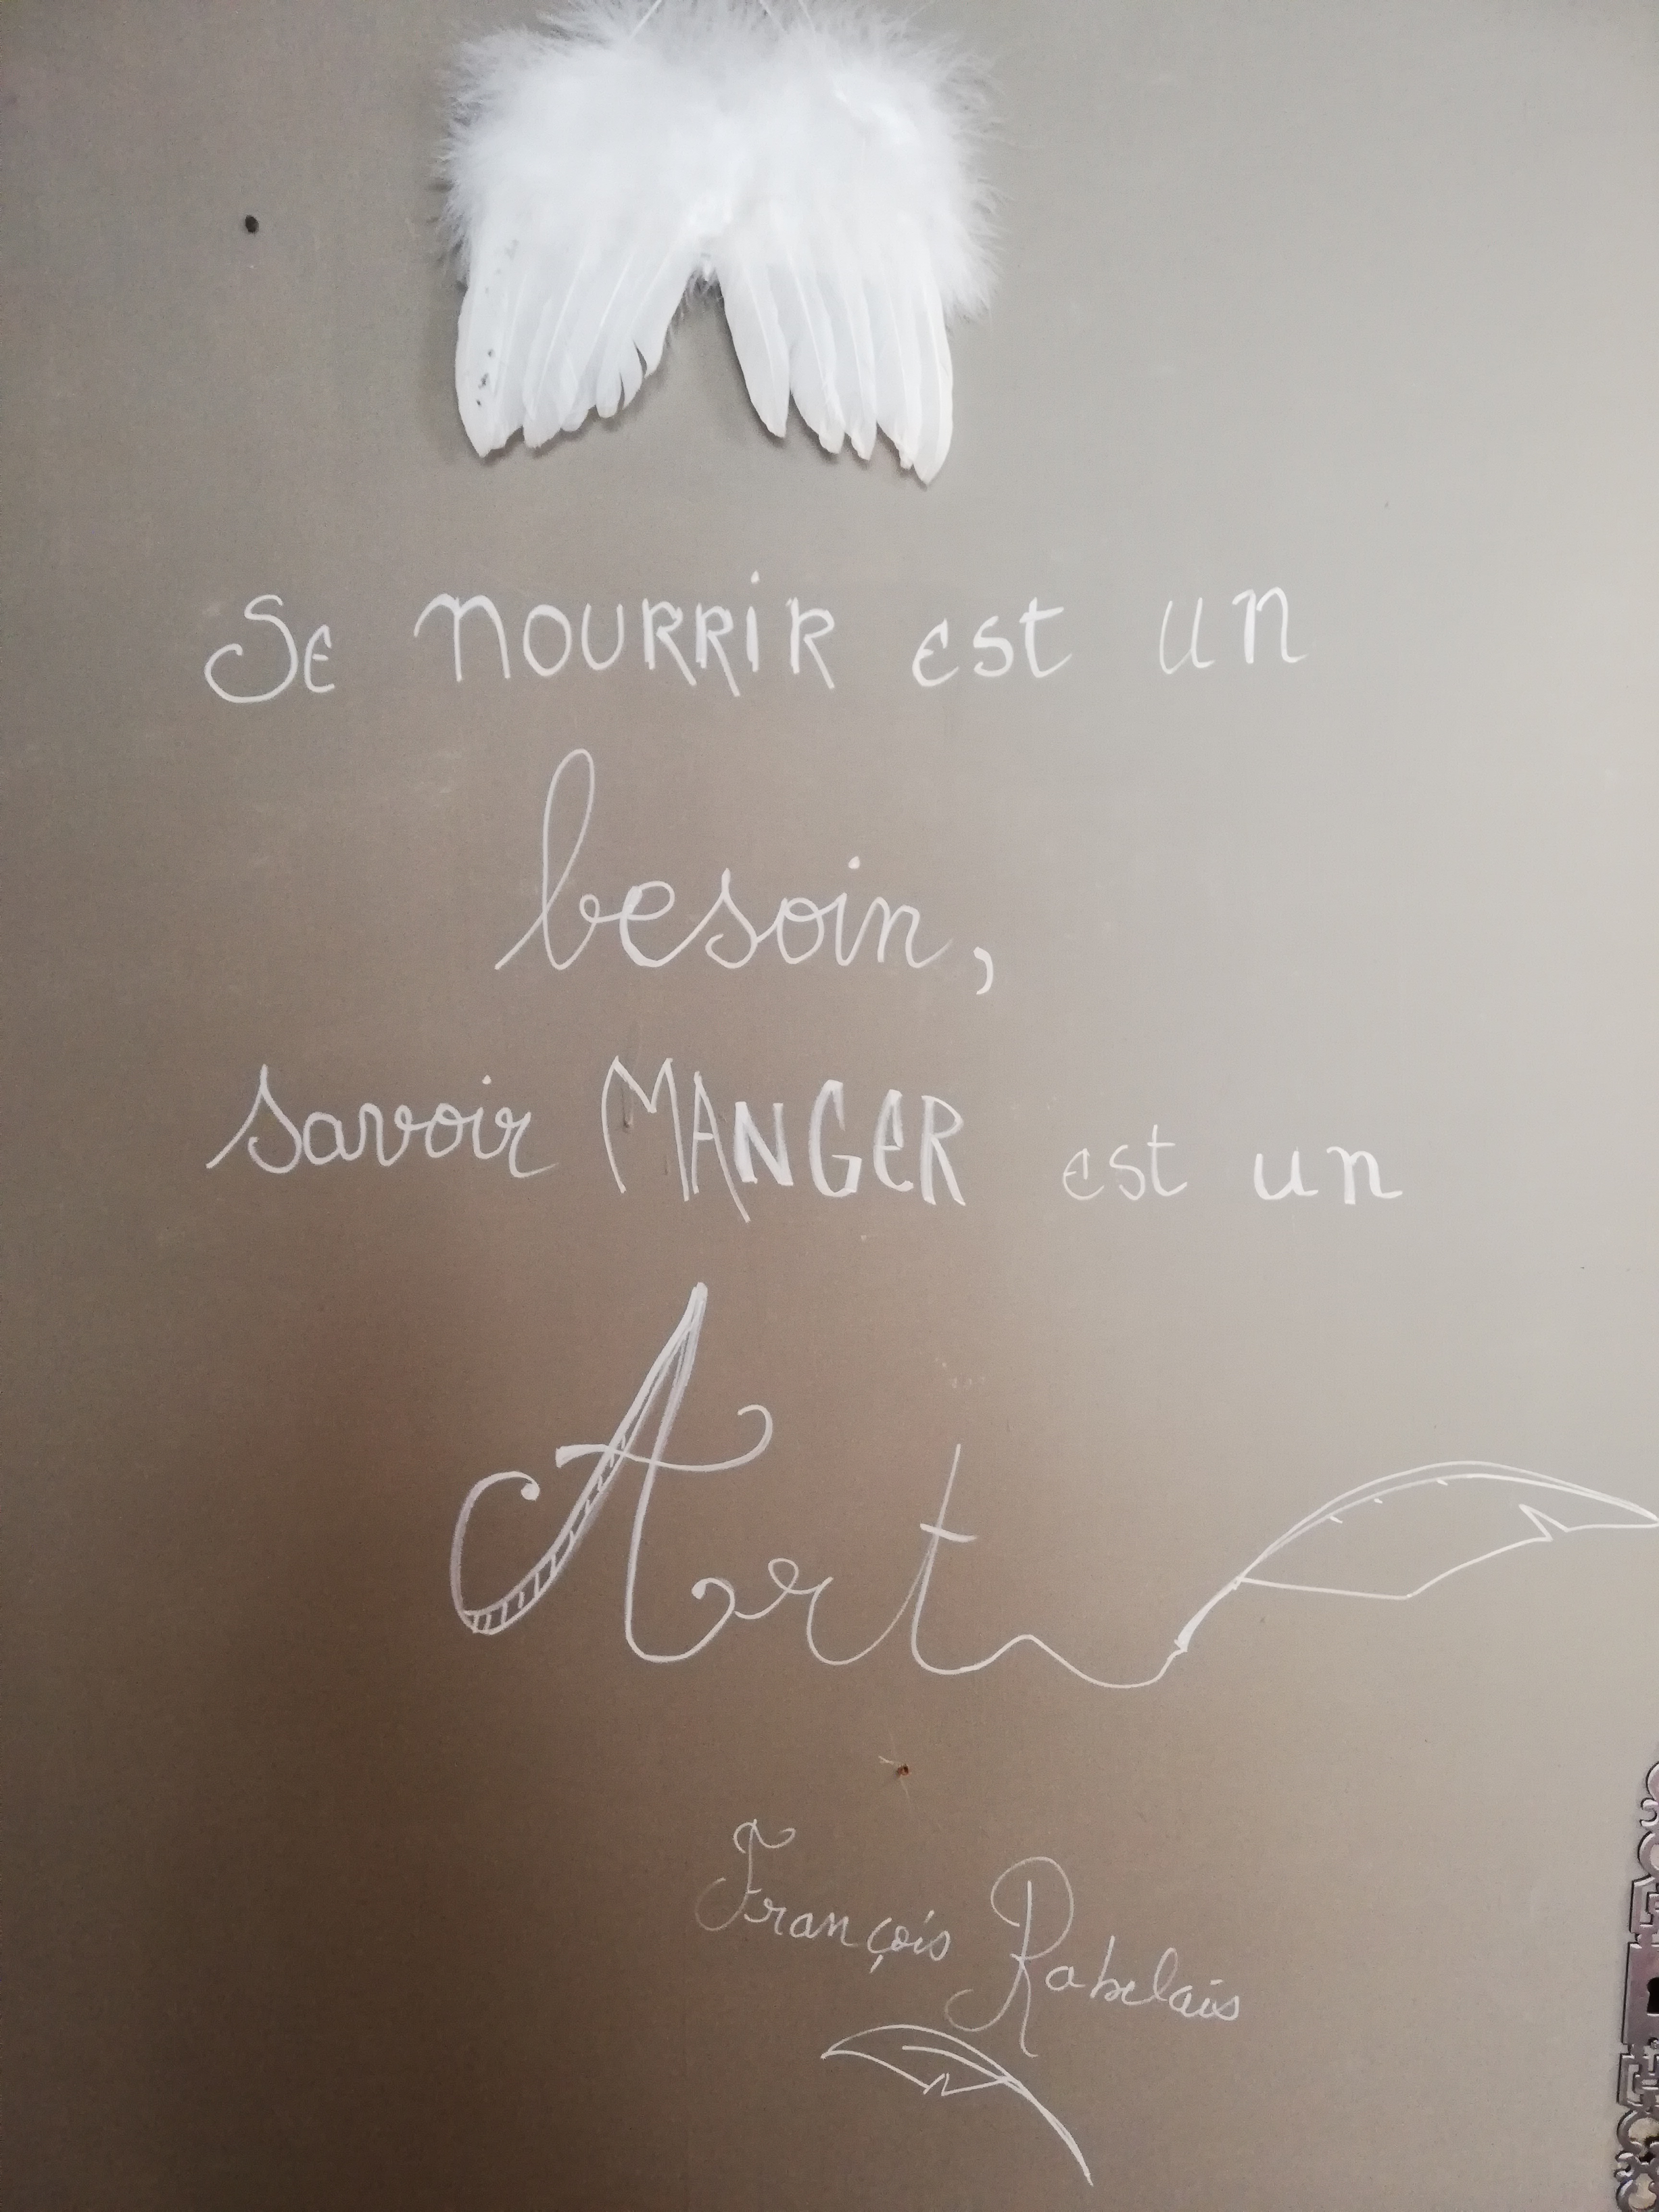 Se NOURRIR est un
besoin,
savoir MANGER est un
Art
François Rabelais